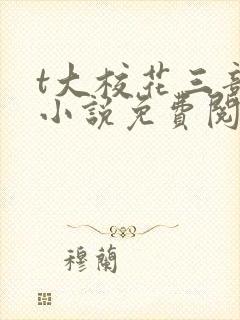 t大校花三部
小說免費閱
穆蘭